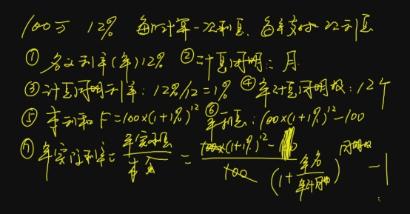 100万 12% 每月计算一次利息、每年支付一次利息
① 名义利率(年)12% ② 计息周期:月
③ 计息周期利率:12%/12=1% ④ 年计息周期数:12个
⑤ 本利和 F=100×(1+1%)^12 ⑥ 年利息:100×(1+1%)^12-100
⑦ 年实际利率= 年实际利息/本金 = 100×(1+1%)^12-100/100 (1+年名/年计周期)^周期数 -1